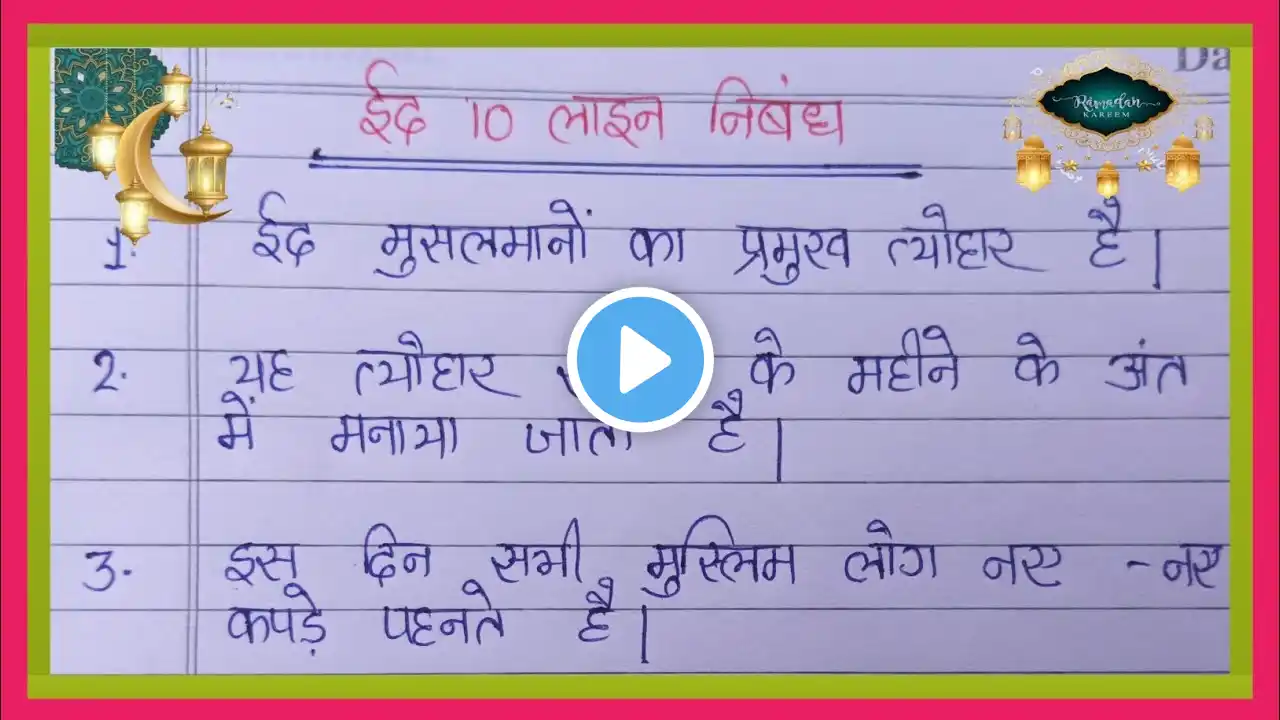 Da
Ramadan
KAREEM
ईद 10 लाइन निबंध
1. ईद मुसलमानों का प्रमुख त्योहार है।
2. यह त्यौहार के महीने के अंत
में मनाया जाता है।
3. इस दिन सभी मुस्लिम लोग नए - नए
कपड़े पहनते है।